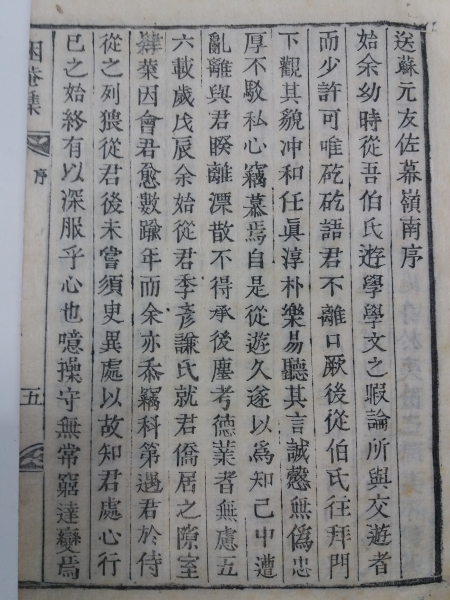 送蘇元友佐幕嶺南序
始余幼時從吾伯氏遊學學文之暇論所與交遊者
而少許可唯矻矻語君不離口厥後從伯氏往拜門
下觀其貌冲和任眞淳朴樂易聽其言誠慤無僞忠
厚不駁私心竊慕焉自是從遊久遂以爲知己中遭
亂離與君睽離漂散不得承後塵考德業者無慮五
六載歲戊辰余始從君季彦謙氏就君僑居之隙室
肄業因會君愈數踰年而余亦忝竊科第遇君於侍
從之列猥從君後未嘗須臾異處以故知君處心行
已之始終有以深服乎心也噫操守無常窮達變焉
集
序
五